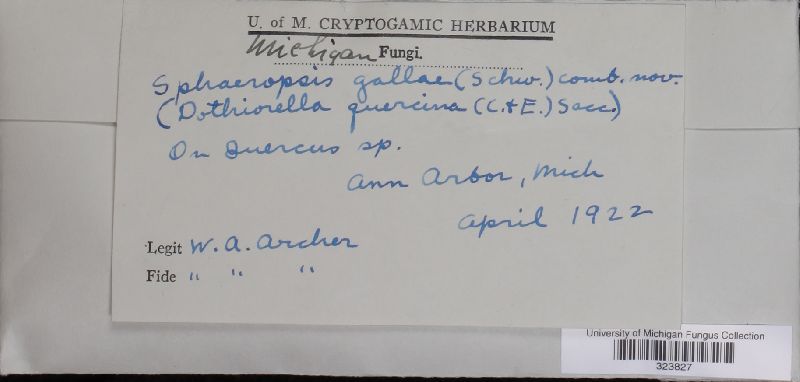 U. of M. CRYPTOGAMIC HERBARIUM
Michigan Fungi.
Sphaeropsis gallae (Schw.) comb. nov.
(Dothiorella quercina (C. & E.) Sacc.)
On Quercus sp.
Ann Arbor, Mich
April 1922
Legit W. A. Archer
Fide " " "
University of Michigan Fungus Collection
323827